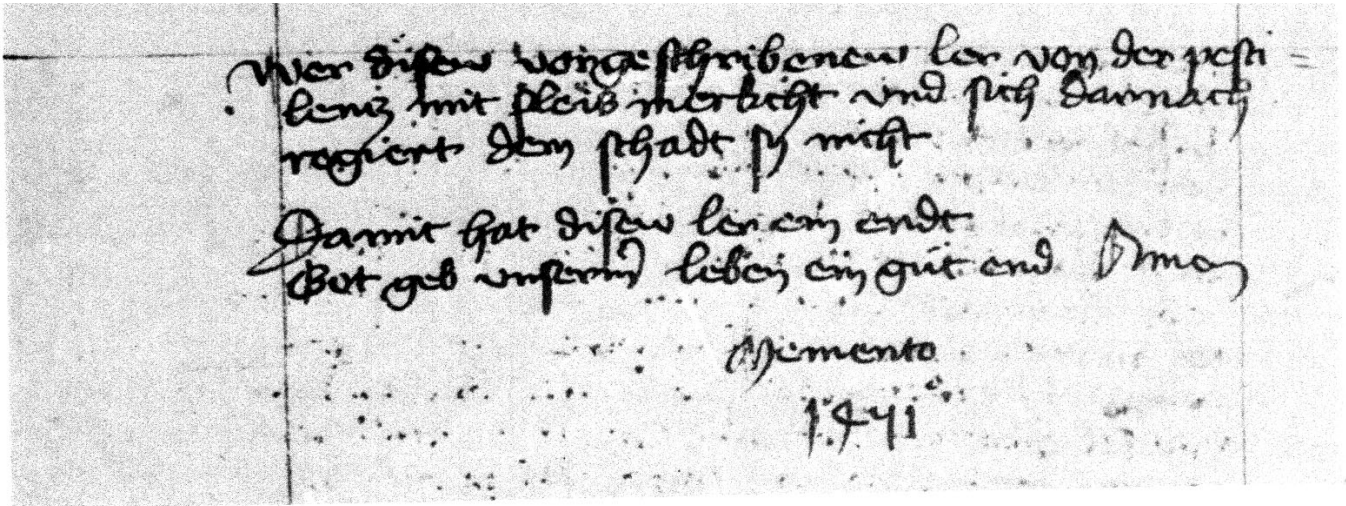 Wer disew vorgeschribenew ler von der pesti=
lencz mit fleis merkcht vnd sich darnach
regiert dem schadt sy nicht
Damit hat disew ler ein endt
Got geb vnserm leben ein gut end Amen
Memento
1471